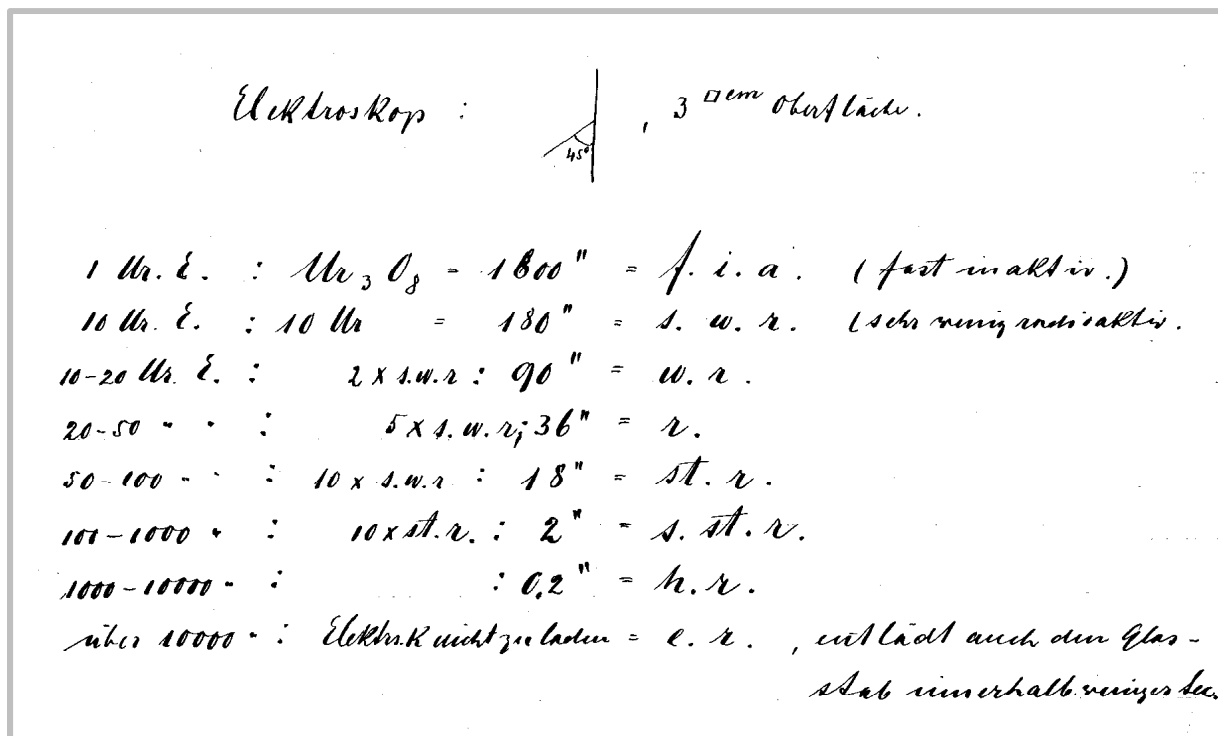 Elektroskop : 45° , 3 □cm Oberfläche.
1 Ur. E. : Ur₃O₈ = 1800" = f. i. a. (fast inaktiv.)
10 Ur. E. : 10 Ur = 180" = s. w. r. (sehr wenig radioaktiv.
10-20 Ur. E. : 2 x s.w.r : 90" = w. r.
20-50 " " : 5 x s. w. r; 36" = r.
50-100 " " : 10 x s.w.r : 18" = st. r.
100-1000 " : 10 x st. r. : 2" = s. st. r.
1000-10000 " : : 0,2" = h. r.
über 10000 " : Elektrsk nicht zu laden = e. r. , entlädt auch den Glas-
stab innerhalb weniger Sec.